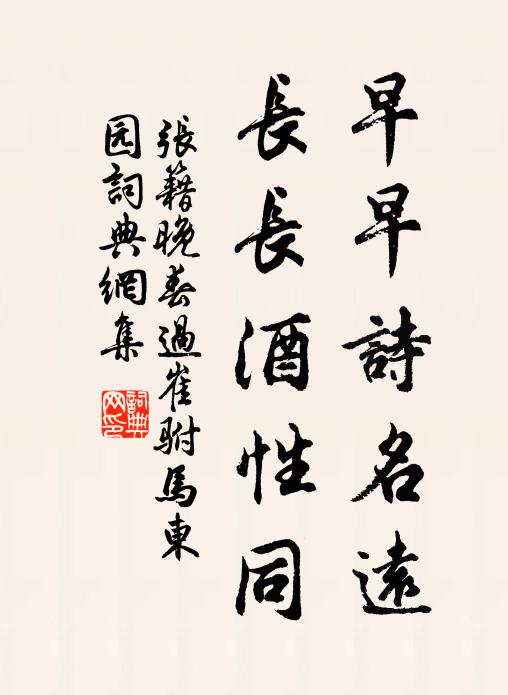 早早詩名遠
長長酒性同
張籍晚春過崔駙馬東
园詞典網集
詞典
网印